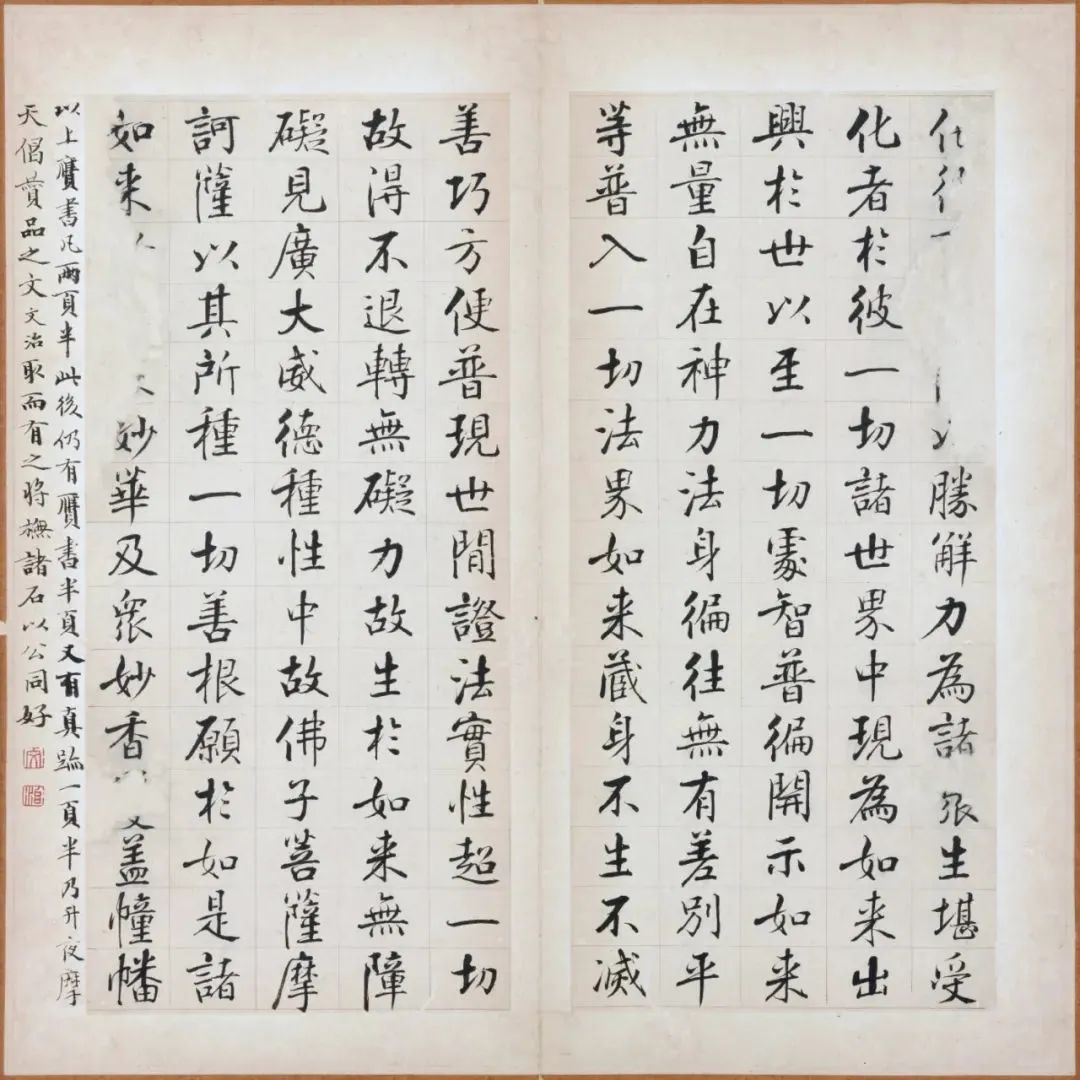 勝解力為諸生堪受
化者於彼一切諸世界中現為如来出
興於世以至一切處智普徧開示如来
無量自在神力法身徧往無有差別平
等普入一切法界如来藏身不生不滅
善巧方便普現世間證法實性超一切
故得不退轉無礙力故生於如来無障
礙見廣大威德種性中故佛子菩薩摩
訶薩以其所種一切善根願於如是諸
如来妙華及眾妙香盖幢幡
以上贋書凡兩頁半此後仍有贋書半頁又有真蹟一頁半乃升夜摩
天偈讚品之文文治取而有之將橅諸石以公同好